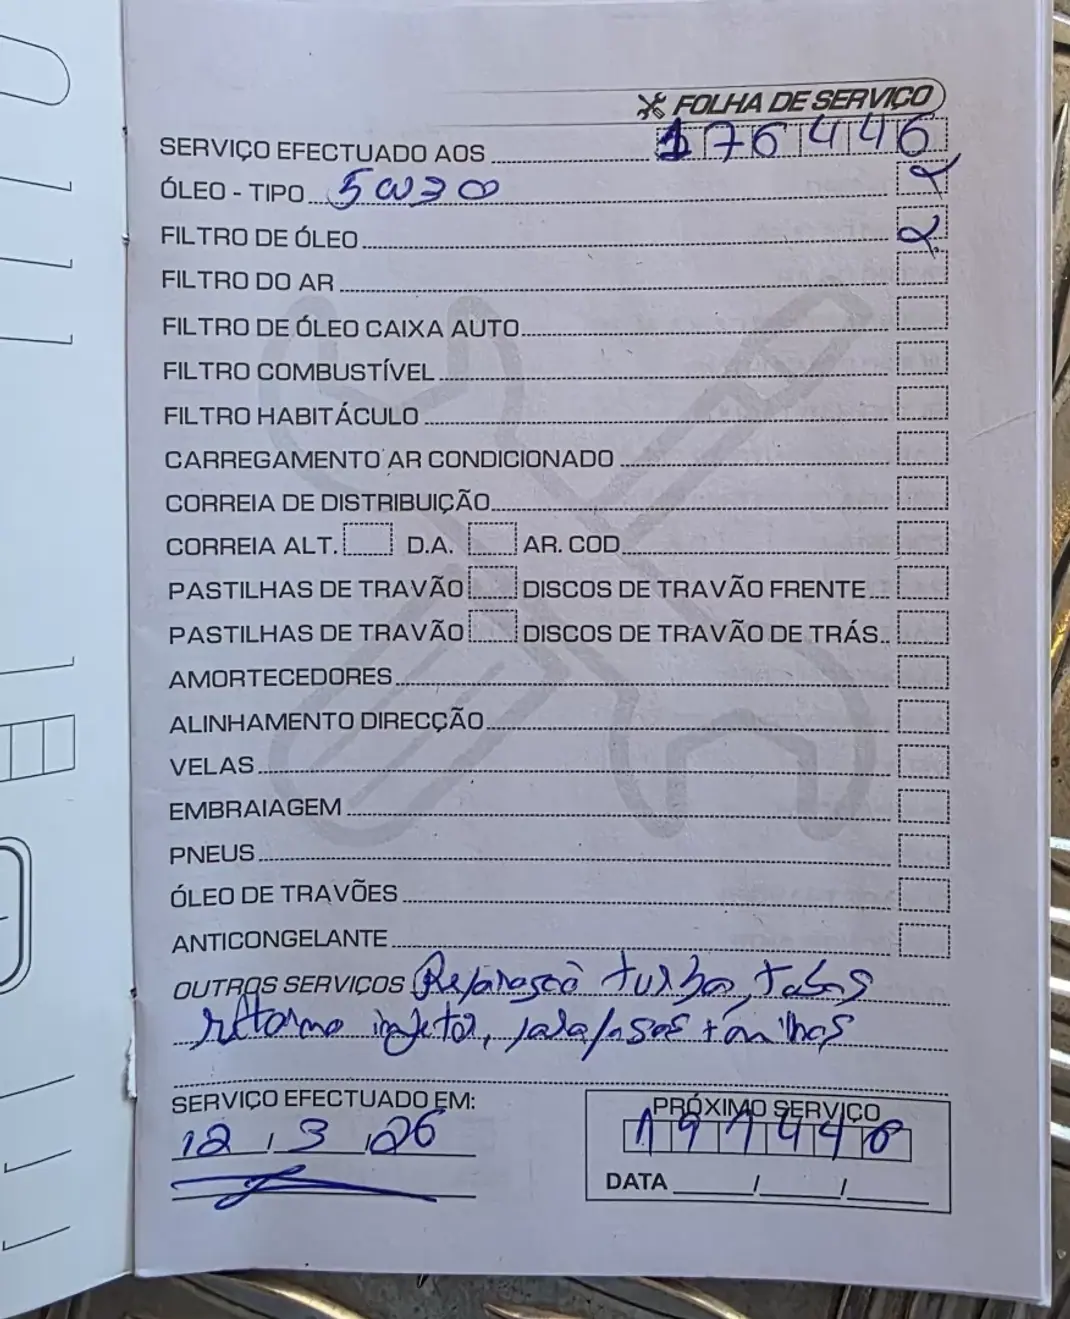 FOLHA DE SERVIÇO
SERVIÇO EFECTUADO AOS 176446
ÓLEO - TIPO 5W30
FILTRO DE ÓLEO
FILTRO DO AR
FILTRO DE ÓLEO CAIXA AUTO
FILTRO COMBUSTÍVEL
FILTRO HABITÁCULO
CARREGAMENTO AR CONDICIONADO
CORREIA DE DISTRIBUIÇÃO
CORREIA ALT. D.A. AR. COD
PASTILHAS DE TRAVÃO DISCOS DE TRAVÃO FRENTE
PASTILHAS DE TRAVÃO DISCOS DE TRAVÃO DE TRÁS
AMORTECEDORES
ALINHAMENTO DIRECÇÃO
VELAS
EMBRAIAGEM
PNEUS
ÓLEO DE TRAVÕES
ANTICONGELANTE
OUTROS SERVIÇOS Reparação turbo, tubos
retorno injetor,
SERVIÇO EFECTUADO EM:
12 / 3 / 26
PRÓXIMO SERVIÇO
191446
DATA / /